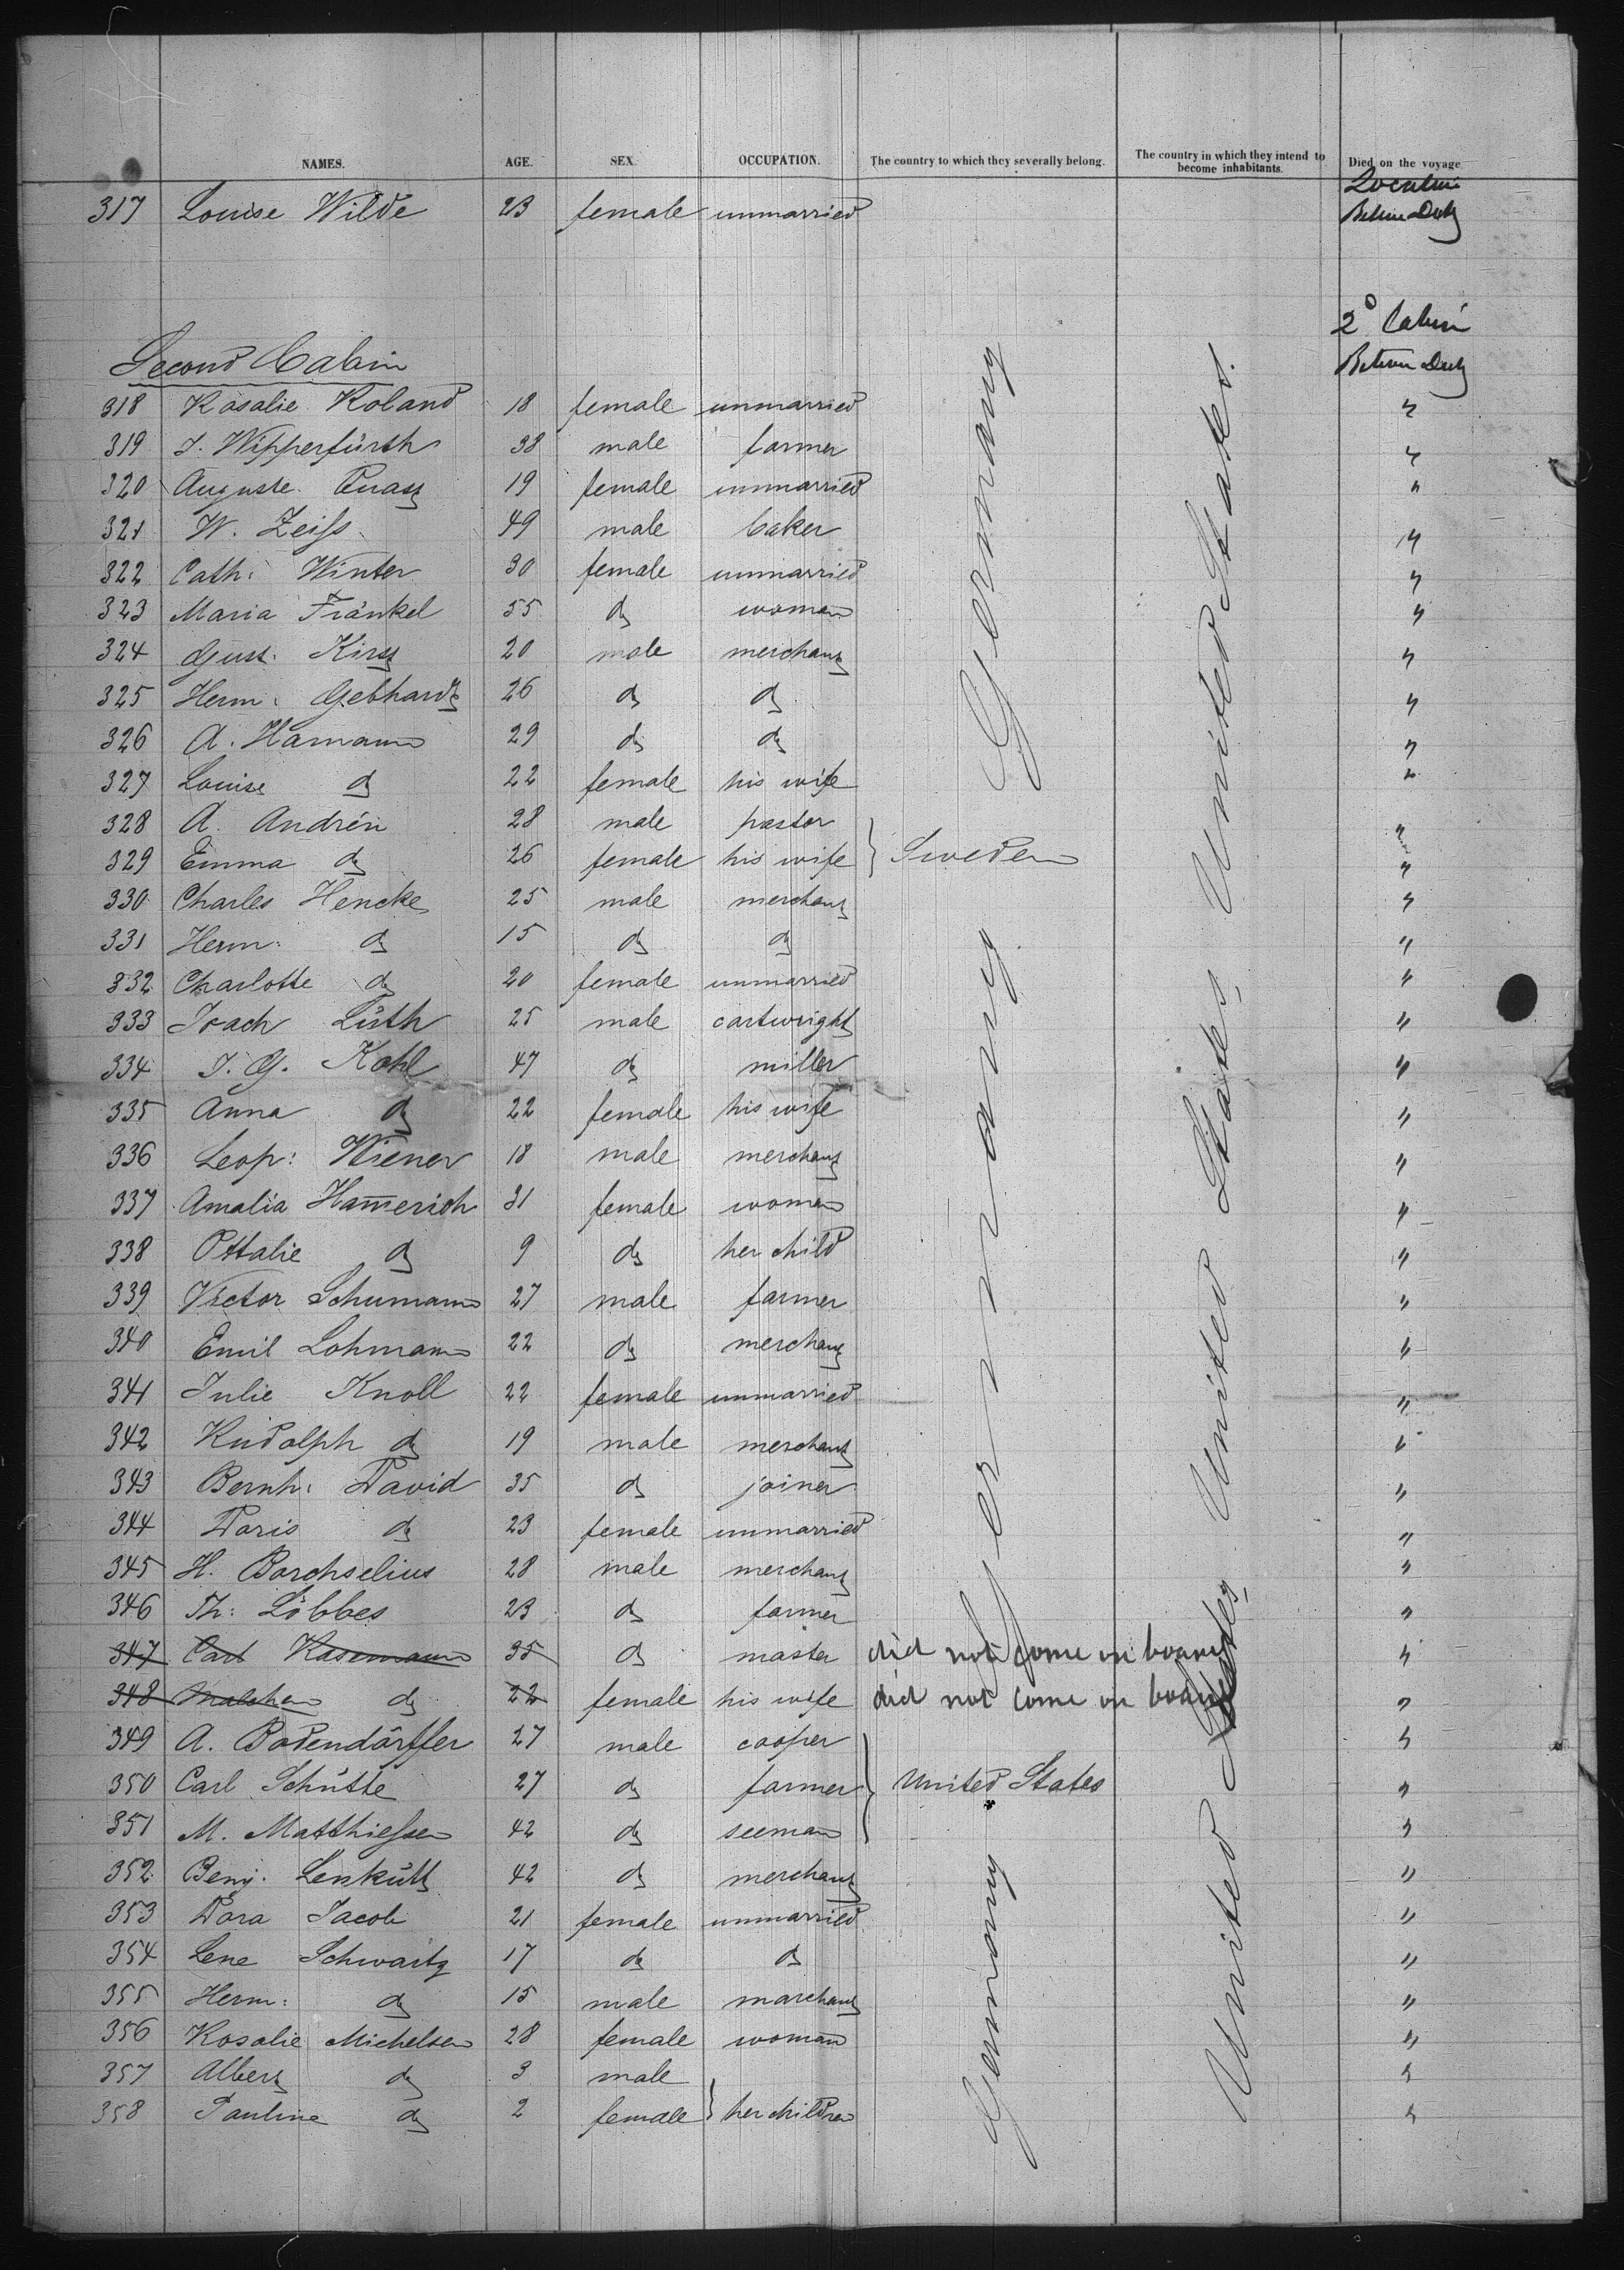 NAMES. AGE. SEX. OCCUPATION. The country to which they severally belong. The country in which they intend to become inhabitants. Died on the voyage
317 Louise Wilde 23 female unmarried
2° Cabin
Second Cabin
318 Rosalie Roland 18 female unmarried "
319 J. Wipperfürth 38 male farmer "
320 Auguste 19 female unmarried "
321 W. Zeiss 49 male baker "
322 Cath: Winter 30 female unmarried "
323 Maria Fränkel 55 do woman "
324 Gust. Kirst 20 male merchant "
325 Herm: Gebhardt 26 do do "
326 A. Hamann 29 do do "
327 Louise do 22 female his wife "
328 A. Andrén 28 male pastor "
329 Emma do 26 female his wife } Sweden "
330 Charles Hencke 25 male merchant "
331 Herm: do 15 do do "
332 Charlotte do 20 female unmarried "
333 Joach Lüth 25 male cartwright "
334 J. G. Kohl 47 do miller "
335 Anna do 22 female his wife "
336 Leop: Wiener 18 male merchant "
337 Amalia Ham̅erich 31 female woman "
338 Ottalie do 9 do her child "
339 Victor Schumann 27 male farmer "
340 Emil Lohmann 22 do merchant "
341 Julie Knoll 22 female unmarried "
342 Rudolph do 19 male merchant "
343 Bernh: David 35 do joiner "
344 Doris do 23 female unmarried "
345 H. Borchselius 28 male merchant "
346 Th: Löbbes 23 do farmer "
347 Carl Kasemann 35 do master did not come on board "
348 Malchen do 22 female his wife did not come on board "
349 A. Bodendörffer 27 male cooper "
350 Carl Schütte 27 do farmer } United States "
351 M. Matthiessen 42 do seeman "
352 Benj. Leskütt 42 do merchant "
353 Dora Jacob 21 female unmarried "
354 Lene Schwartz 17 do do "
355 Herm: do 15 male marchant "
356 Rosalie Michelsen 28 female woman "
357 Albert do 3 male "
358 Pauline do 2 female } her children "
Germany
Germany
Germany
United States.
United States
United States